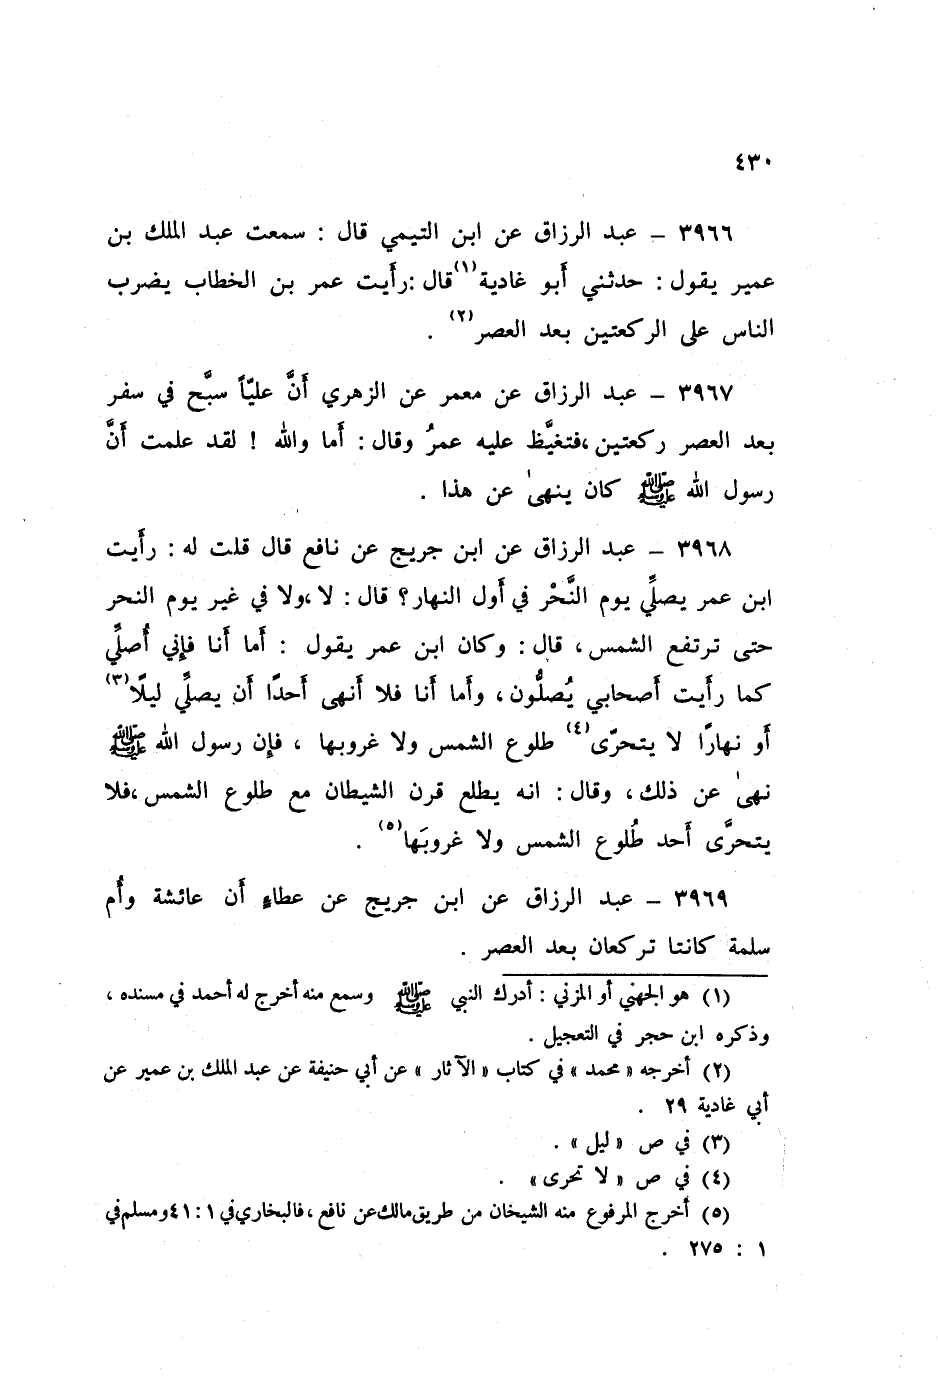 ٤٣٠
٣٩٦٦ – عبد الرزاق عن ابن التيمي قال : سمعت عبد الملك بن
عمير يقول : حدثني أَبو غادية(١) قال : رأَيت عمر بن الخطاب يضرب
الناس على الركعتين بعد العصر(٢) .
٣٩٦٧ – عبد الرزاق عن معمر عن الزهري أَنَّ عليّاً سبَّح في سفر
بعد العصر ركعتين ، فتغيَّظ عليه عمرُ وقال : أَما والله ! لقد علمت أَنَّ
رسول الله ﷺ كان ينهىٰ عن هذا .
٣٩٦٨ – عبد الرزاق عن ابن جريج عن نافع قال قلت له : رأَيت
ابن عمر يصلِّي يوم النَّحْر في أَول النهار ؟ قال : لا ، ولا في غير يوم النحر
حتى ترتفع الشمس ، قال : وكان ابن عمر يقول : أَما أَنا فإِني أُصلِّي
كما رأَيت أَصحابي يُصلُّون ، وأَما أَنا فلا أَنهى أَحدًا أَن يصلِّي ليلًا(٣)
أَو نهارًا لا يتحرّى(٤) طلوع الشمس ولا غروبها ، فإِن رسول الله ﷺ
نهىٰ عن ذلك ، وقال : انه يطلع قرن الشيطان مع طلوع الشمس ، فلا
يتحرَّى أَحد طُلوع الشمس ولا غروبَها(٥) .
٣٩٦٩ – عبد الرزاق عن ابن جريج عن عطاءٍ أَن عائشة وأُم
سلمة كانتا تركعان بعد العصر .
(١) هو الجهني أو المزني : أدرك النبي ﷺ وسمع منه أخرج له أحمد في مسنده ،
وذكره ابن حجر في التعجيل .
(٢) أخرجه «محمد» في كتاب «الآثار» عن أبي حنيفة عن عبد الملك بن عمير عن
أبي غادية ٢٩ .
(٣) في ص «ليل» .
(٤) في ص «لا تحرى» .
(٥) أخرج المرفوع منه الشيخان من طريق مالك عن نافع ، فالبخاري في ١ : ٤١ ومسلم في
١ : ٢٧٥ .